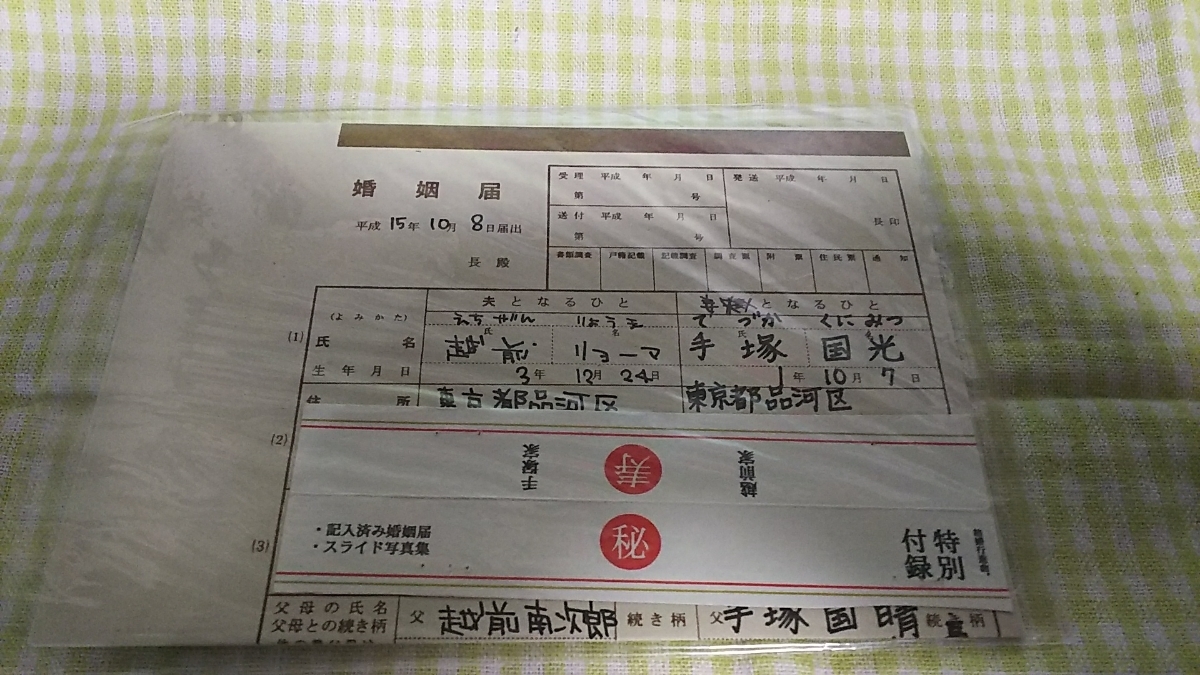 婚姻届
平成15年10月8日届出
長殿
受理 平成 年 月 日
第 号
送付 平成 年 月 日
第 号
発送 平成 年 月 日
長印
書類調査 戸籍記載 記載調査 調査票 附票 住民票 通知
(1)
(よみかた)
氏名
生年月日
住所
夫となるひと
えちぜん りょうま
氏 名
越前 リョーマ
3年 12月 24日
東京都品河区
となるひと
てづか くにみつ
氏 名
手塚 国光
1年 10月 7日
東京都品河区
(2)
手塚家 寿 越前家
(3)
・記入済み婚姻届
・スライド写真集
秘
特別付録
父母の氏名
父母との続き柄
父 越前南次郎 続き柄
父 手塚国晴 続き柄